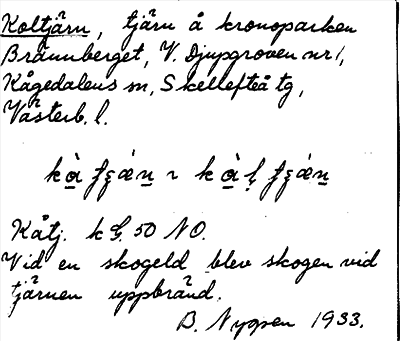 Koltjärn, tjärn å kronoparken
Brännberget, V. Djupgroven nr 1,
Kågedalens sn, Skellefteå tg,
Västerb. l.
Kåtj. k
50 NO.
Vid en skogeld blev skogen vid
tjärnen uppbränd.
B. Nygren 1933.